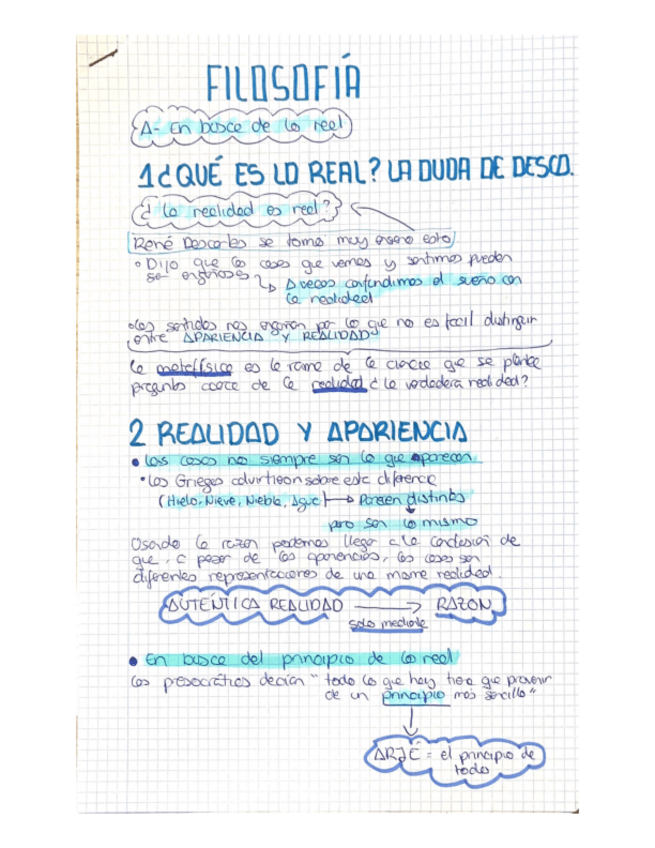 FILOSOFÍA
A- En busca de lo real
1 ¿QUÉ ES LO REAL? LA DUDA DE DESCO.
¿ La realidad es real?
René Descartes se toma muy enserio esto
Dijo que las cosas que vemos y sentimos pueden
ser engañosas ↳ A veces confundimos el sueño con
la realidad
Los sentidos nos engañan por lo que no es facil distinguir
entre APARIENCIA Y REALIDAD
La metafísica es la rama de la ciencia que se plantea
preguntas acerca de la realidad ¿ la verdadera realidad?
2 REALIDAD Y APARIENCIA
• Las cosas no siempre son lo que aparecen
• Los Griegos advirtieron sobre esta diferencia
(Hielo, Nieve, Niebla, Agua) → Parecen distintos
pero son lo mismo
Usando la razón podemos llegar a la conclusión de
que, a pesar de las apariencias, las cosas son
diferentes representaciones de una misma realidad
AUTÉNTICA REALIDAD → RAZON
solo mediante
• En busca del principio de lo real
Los presocráticos decían "todo lo que hay tiene que provenir
de un principio más sencillo"
ARJÉ = el principio de
todo